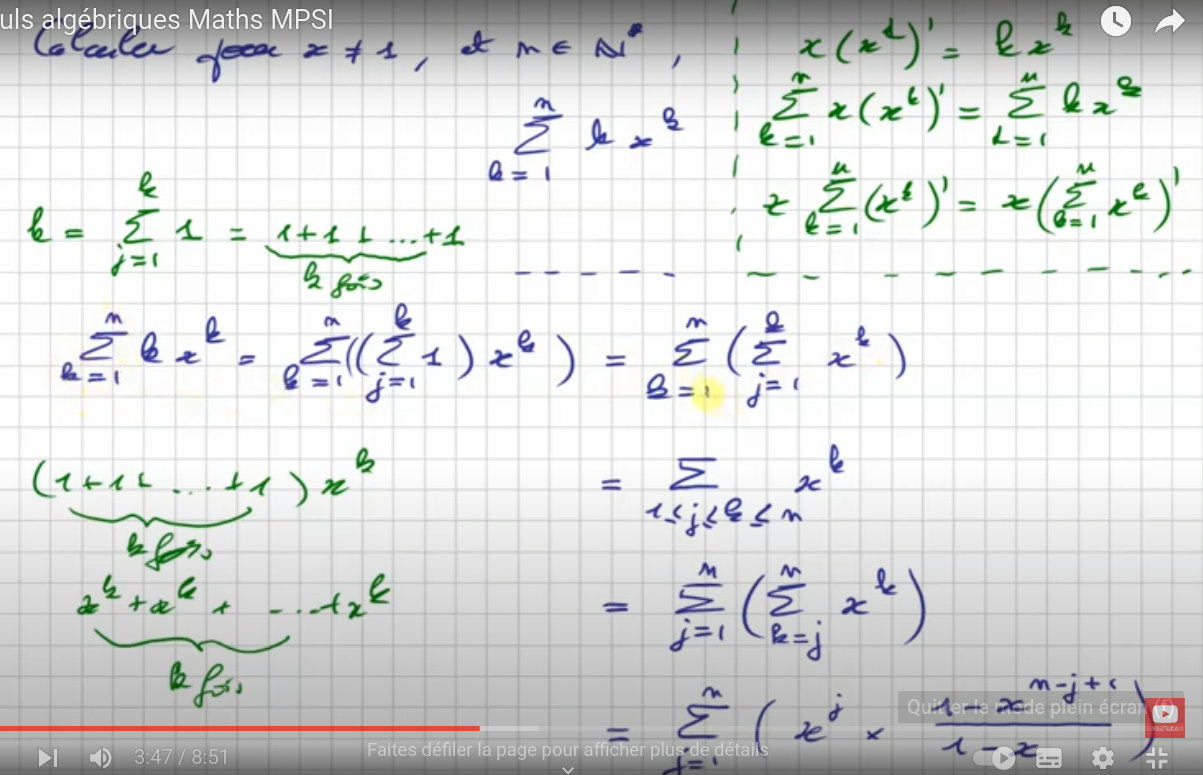 uls algébriques Maths MPSI
Calculer pour x ≠ 1, et n ∈ ℕ*,
∑_{k=1}^{n} k x^k
x(x^k)' = k x^k
∑_{k=1}^{n} x(x^k)' = ∑_{k=1}^{n} k x^k
x ∑_{k=1}^{n} (x^k)' = x(∑_{k=1}^{n} x^k)'
k = ∑_{j=1}^{k} 1 = 1+1+...+1
k fois
∑_{k=1}^{n} k x^k = ∑_{k=1}^{n} ((∑_{j=1}^{k} 1) x^k) = ∑_{k=1}^{n} (∑_{j=1}^{k} x^k)
(1+1+...+1) x^k
k fois
= ∑_{1≤j≤k≤n} x^k
x^k + x^k + ... + x^k
k fois
= ∑_{j=1}^{n} (∑_{k=j}^{n} x^k)
= ∑_{j=1}^{n} (x^j × (1 - x^{n-j+1})/(1-x))
Quitter le mode plein écran
YouTube
3:47 / 8:51
Faites défiler la page pour afficher plus de détails